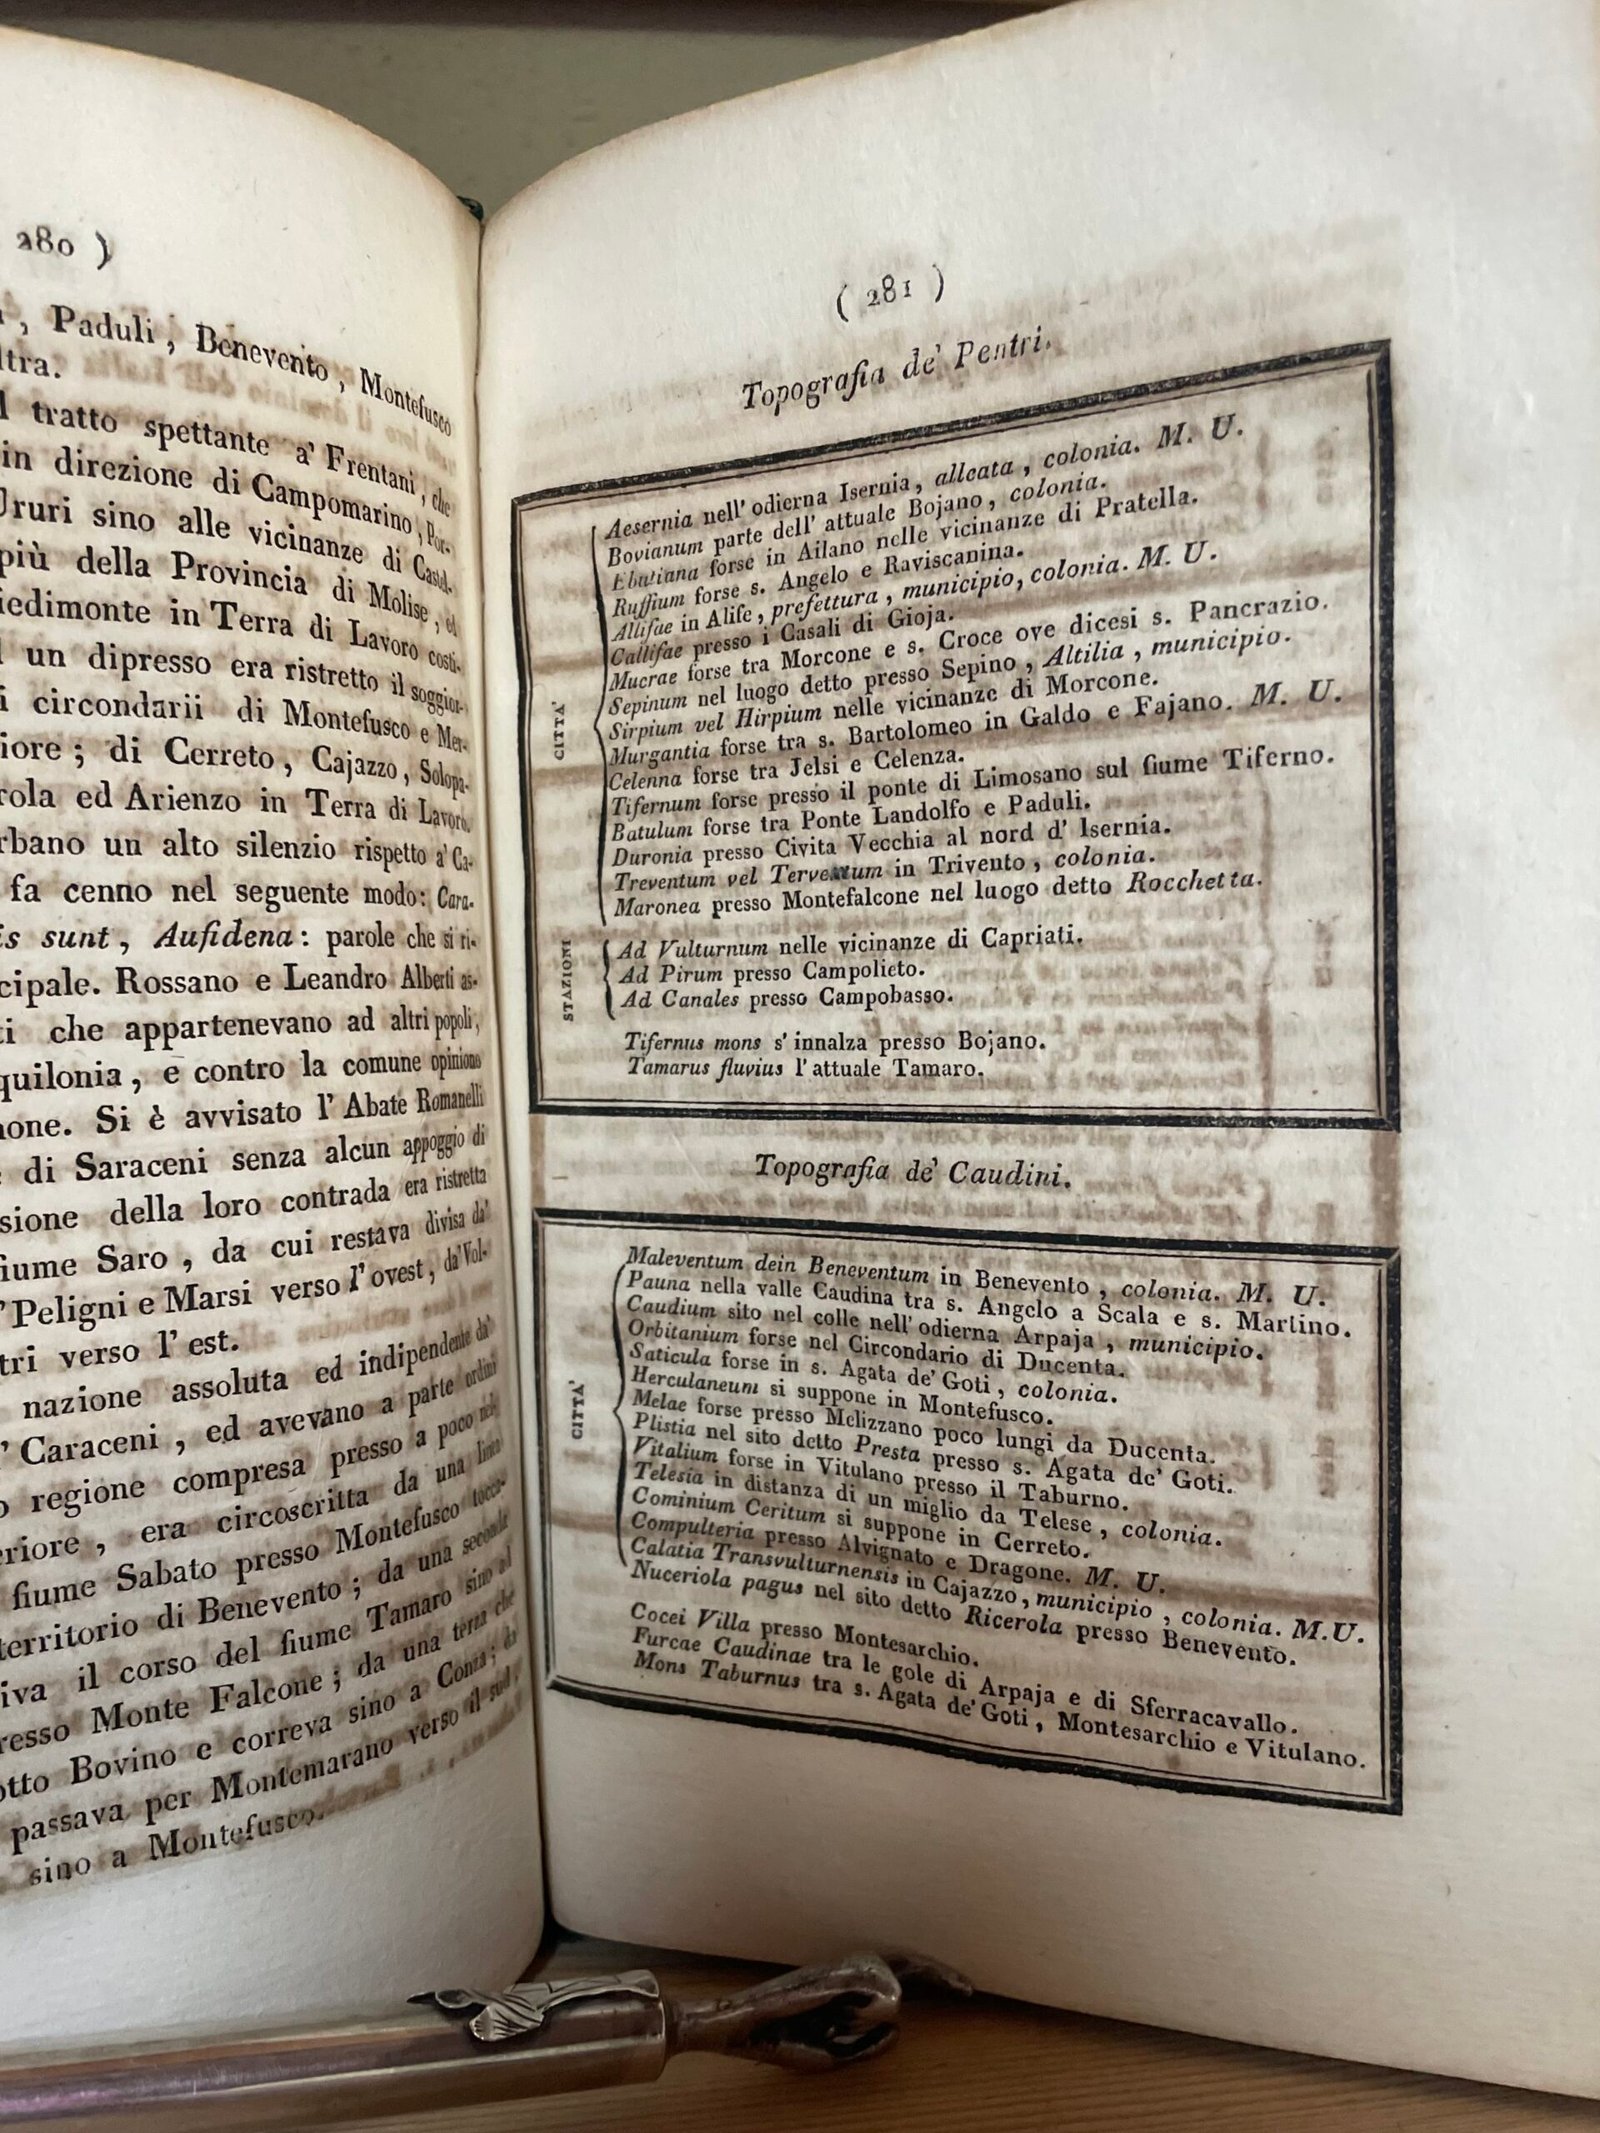 280 )
, Paduli, Benevento, Montefusco
ltra.
tratto spettante a' Frentani, che
in direzione di Campomarino, Por-
Ururi sino alle vicinanze di Castel-
più della Provincia di Molise, ed
iedimonte in Terra di Lavoro costi-
un dipresso era ristretto il soggior-
i circondarii di Montefusco e Mer-
iore; di Cerreto, Cajazzo, Solopa-
rola ed Arienzo in Terra di Lavoro.
rbano un alto silenzio rispetto a' Ca-
fa cenno nel seguente modo: Cara-
is sunt, Aufidena: parole che si ri-
cipale. Rossano e Leandro Alberti as-
ti che appartenevano ad altri popoli,
quilonia, e contro la comune opinione
none. Si è avvisato l' Abate Romanelli
di Saraceni senza alcun appoggio di
sione della loro contrada era ristretta
fiume Saro, da cui restava divisa da'
' Peligni e Marsi verso l' ovest, da' Vol-
tri verso l' est.
nazione assoluta ed indipendente da'
' Caraceni, ed avevano a parte ordini
o regione compresa presso a poco nel-
eriore, era circoscritta da una linea
fiume Sabato presso Montefusco tocca-
territorio di Benevento; da una seconda
iva il corso del fiume Tamaro sino ad
resso Monte Falcone; da una terza che
otto Bovino e correva sino a Conza; da
passava per Montemarano verso il sud,
sino a Montefusco.
( 281 )
Topografia de' Pentri.
CITTA'
Aesernia nell' odierna Isernia, alleata, colonia. M. U.
Bovianum parte dell' attuale Bojano, colonia.
Ebutiana forse in Ailano nelle vicinanze di Pratella.
Ruffium forse s. Angelo e Raviscanina.
Allifae in Alife, prefettura, municipio, colonia. M. U.
Callifae presso i Casali di Gioja.
Mucrae forse tra Morcone e s. Croce ove dicesi s. Pancrazio.
Sepinum nel luogo detto presso Sepino, Altilia, municipio.
Sirpium vel Hirpium nelle vicinanze di Morcone.
Murgantia forse tra s. Bartolomeo in Galdo e Fajano. M. U.
Celenna forse tra Jelsi e Celenza.
Tifernum forse presso il ponte di Limosano sul fiume Tiferno.
Batulum forse tra Ponte Landolfo e Paduli.
Duronia presso Civita Vecchia al nord d' Isernia.
Treventum vel Terventum in Trivento, colonia.
Maronea presso Montefalcone nel luogo detto Rocchetta.
STAZIONI
Ad Vulturnum nelle vicinanze di Capriati.
Ad Pirum presso Campolieto.
Ad Canales presso Campobasso.
Tifernus mons s' innalza presso Bojano.
Tamarus fluvius l' attuale Tamaro.
Topografia de' Caudini.
CITTA'
Maleventum dein Beneventum in Benevento, colonia. M. U.
Pauna nella valle Caudina tra s. Angelo a Scala e s. Martino.
Caudium sito nel colle nell' odierna Arpaja, municipio.
Orbitanium forse nel Circondario di Ducenta.
Saticula forse in s. Agata de' Goti, colonia.
Herculaneum si suppone in Montefusco.
Melae forse presso Melizzano poco lungi da Ducenta.
Plistia nel sito detto Presta presso s. Agata de' Goti.
Vitalium forse in Vitulano presso il Taburno.
Telesia in distanza di un miglio da Telese, colonia.
Cominium Ceritum si suppone in Cerreto.
Compulteria presso Alvignato e Dragone. M. U.
Calatia Transvulturnensis in Cajazzo, municipio, colonia. M.U.
Nuceriola pagus nel sito detto Ricerola presso Benevento.
Cocei Villa presso Montesarchio.
Furcae Caudinae tra le gole di Arpaja e di Sferracavallo.
Mons Taburnus tra s. Agata de' Goti, Montesarchio e Vitulano.